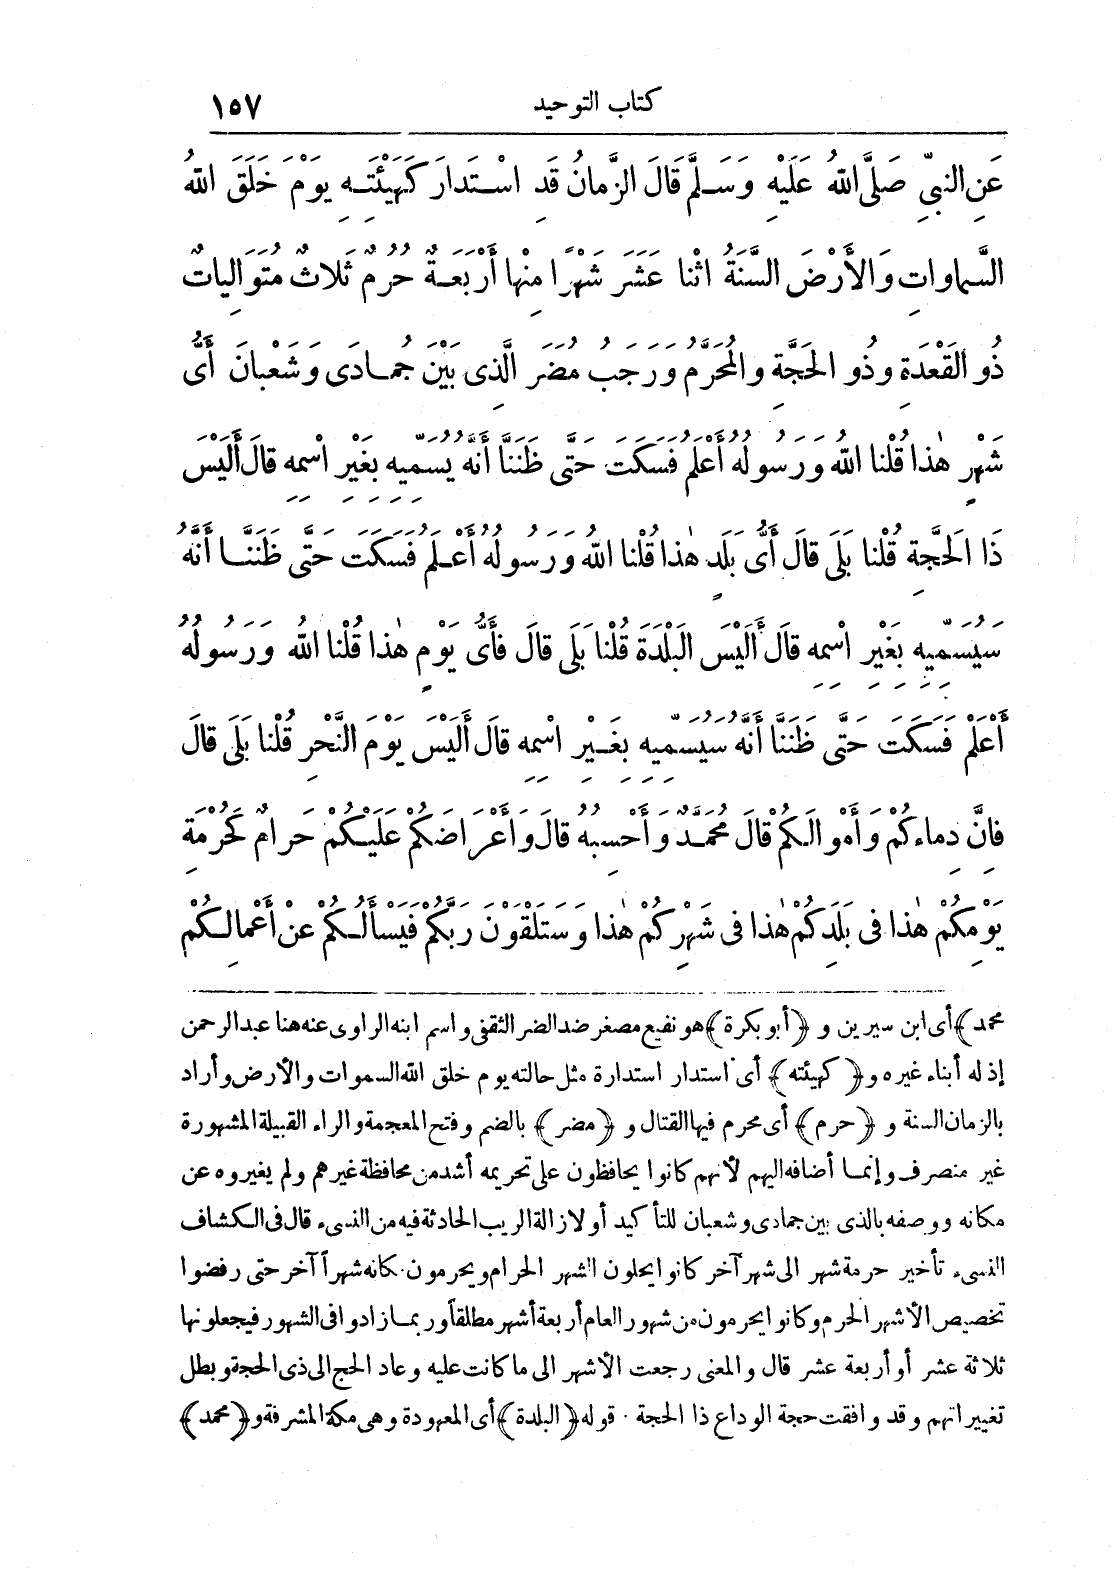 كتاب التوحيد ١٥٧
عَنِ النبيِّ صَلَّى اللهُ عَلَيْهِ وَسَلَّمَ قَالَ الزَّمانُ قَدِ اسْتَدارَ كَهَيْئَتِهِ يَوْمَ خَلَقَ اللهُ
السَّماواتِ وَالأَرْضَ السَّنَةُ اثْنا عَشَرَ شَهْرًا مِنْها أَرْبَعَةٌ حُرُمٌ ثَلاثٌ مُتَوَالِياتٌ
ذُو القَعْدَةِ وذُو الحَجَّةِ والمُحَرَّمُ وَرَجَبُ مُضَرَ الَّذِى بَيْنَ جُمادَى وَشَعْبانَ أَىُّ
شَهْرٍ هٰذا قُلْنا اللهُ وَرَسولُهُ أَعْلَمُ فَسَكَتَ حَتَّى ظَنَنَّا أَنَّهُ يُسَمِّيهِ بِغَيْرِ اسْمِهِ قالَ أَلَيْسَ
ذَا الحَجَّةِ قُلْنا بَلَى قالَ أَىُّ بَلَدٍ هٰذا قُلْنا اللهُ وَرَسُولُهُ أَعْلَمُ فَسَكَتَ حَتَّى ظَنَنَّا أَنَّهُ
سَيُسَمِّيهِ بِغَيْرِ اسْمِهِ قالَ أَلَيْسَ البَلْدَةَ قُلْنا بَلَى قالَ فَأَىُّ يَوْمٍ هٰذا قُلْنا اللهُ وَرَسُولُهُ
أَعْلَمُ فَسَكَتَ حَتَّى ظَنَنَّا أَنَّهُ سَيُسَمِّيهِ بِغَيْرِ اسْمِهِ قالَ أَلَيْسَ يَوْمَ النَّحْرِ قُلْنا بَلَى قالَ
فانَّ دِماءَكُمْ وَأَمْوالَكُمْ قالَ مُحَمَّدٌ وَأَحْسِبُهُ قالَ وَأَعْرَاضَكُمْ عَلَيْكُمْ حَرامٌ كَحُرْمَةِ
يَوْمِكُمْ هٰذا فى بَلَدِكُمْ هٰذا فى شَهْرِكُمْ هٰذا وَسَتَلْقَوْنَ رَبَّكُمْ فَيَسْأَلُكُمْ عَنْ أَعْمالِكُمْ
محمد﴾ أى ابن سيرين و ﴿أبو بكرة﴾ هو نفيع مصغر ضد الضر الثقفى واسم ابنه الراوى عنه هنا عبد الرحمن
إذ له أبناء غيره و﴿كهيئته﴾ أى استدار استدارة مثل حالته يوم خلق الله السموات والأرض وأراد
بالزمان السنة و ﴿حرم﴾ أى محرم فيها القتال و ﴿مضر﴾ بالضم وفتح المعجمة والراء القبيلة المشهورة
غير منصرف وإنما أضافه اليهم لأنهم كانوا يحافظون على تحريمه أشد من محافظة غيرهم ولم يغيروه عن
مكانه ووصفه بالذى بين جمادى وشعبان للتأكيد أو لازالة الريب الحادثة فيه من النسىء قال فى الكشاف
النسىء تأخير حرمة شهر الى شهر آخر كانوا يحلون الشهر الحرام ويحرمون مكانه شهراً آخر حتى رفضوا
تخصيص الأشهر الحرم وكانوا يحرمون من شهور العام أربعة أشهر مطلقاً وربما زادوا فى الشهور فيجعلونها
ثلاثة عشر أو أربعة عشر قال والمعنى رجعت الأشهر الى ما كانت عليه وعاد الحج الى ذى الحجة وبطل
تغييراتهم وقد وافقت حجة الوداع ذا الحجة . قوله ﴿البلدة﴾ أى المعهودة وهى مكة المشرفة و﴿محمد﴾